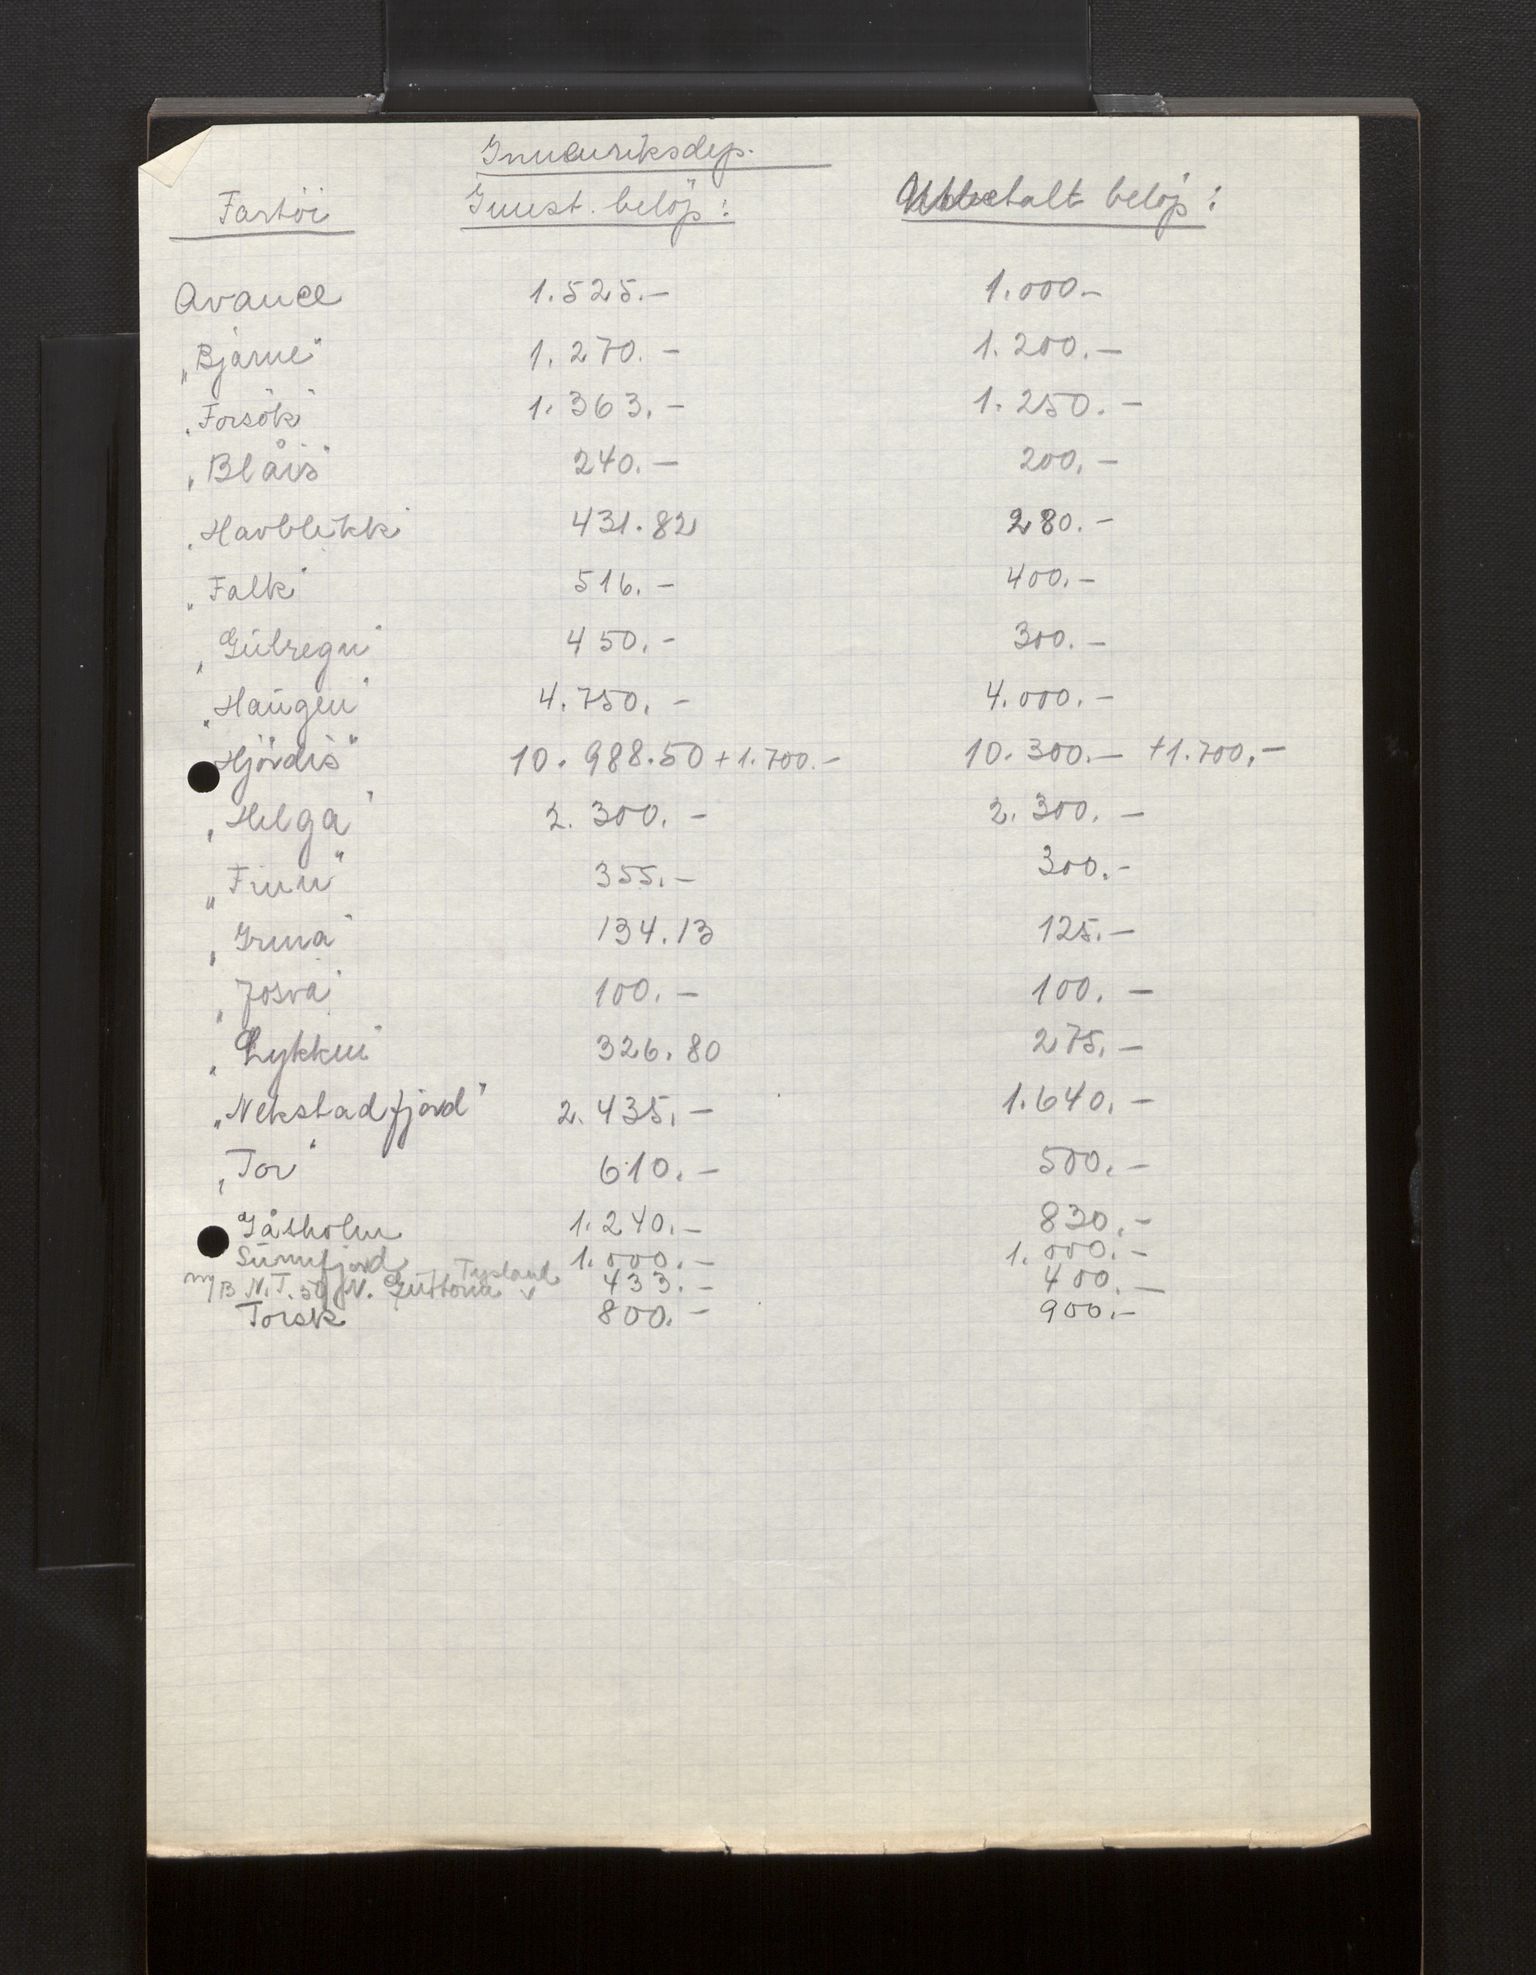 Innenriksdep.
Fartöi Innst. belöp: Utbetalt belöp:
Avance 1.525.- 1.000.-
"Bjarne" 1.270.- 1.200.-
"Forsök" 1.363.- 1.250.-
"Blåis" 240.- 200.-
"Havblikk" 431.82 280.-
"Falk" 516.- 400.-
"Gullregn" 450.- 300.-
"Haugen" 4.750.- 4.000.-
"Hjördis" 10.988.50 + 1.700.- 10.300.- + 1.700.-
"Helga" 2.300.- 2.300.-
"Finn" 355.- 300.-
"Irma" 134.13 125.-
"Josva" 100.- 100.-
"Lykken" 326.80 275.-
"Nekstadfjord" 2.435.- 1.640.-
"Tor" 610.- 500.-
Gåsholm 1.240.- 830.-
Sunnfjord 1.000.- 1.000.-
m/B N.T. 50 N. 433.- 400.-
Torsk 800.- 900.-